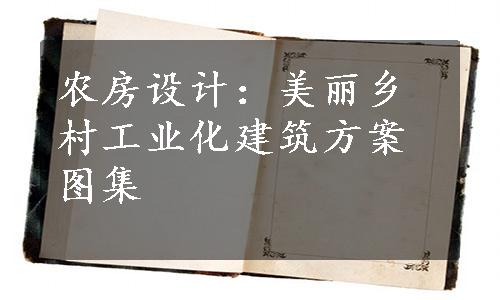 农房设计：美丽乡
村工业化建筑方案
图集